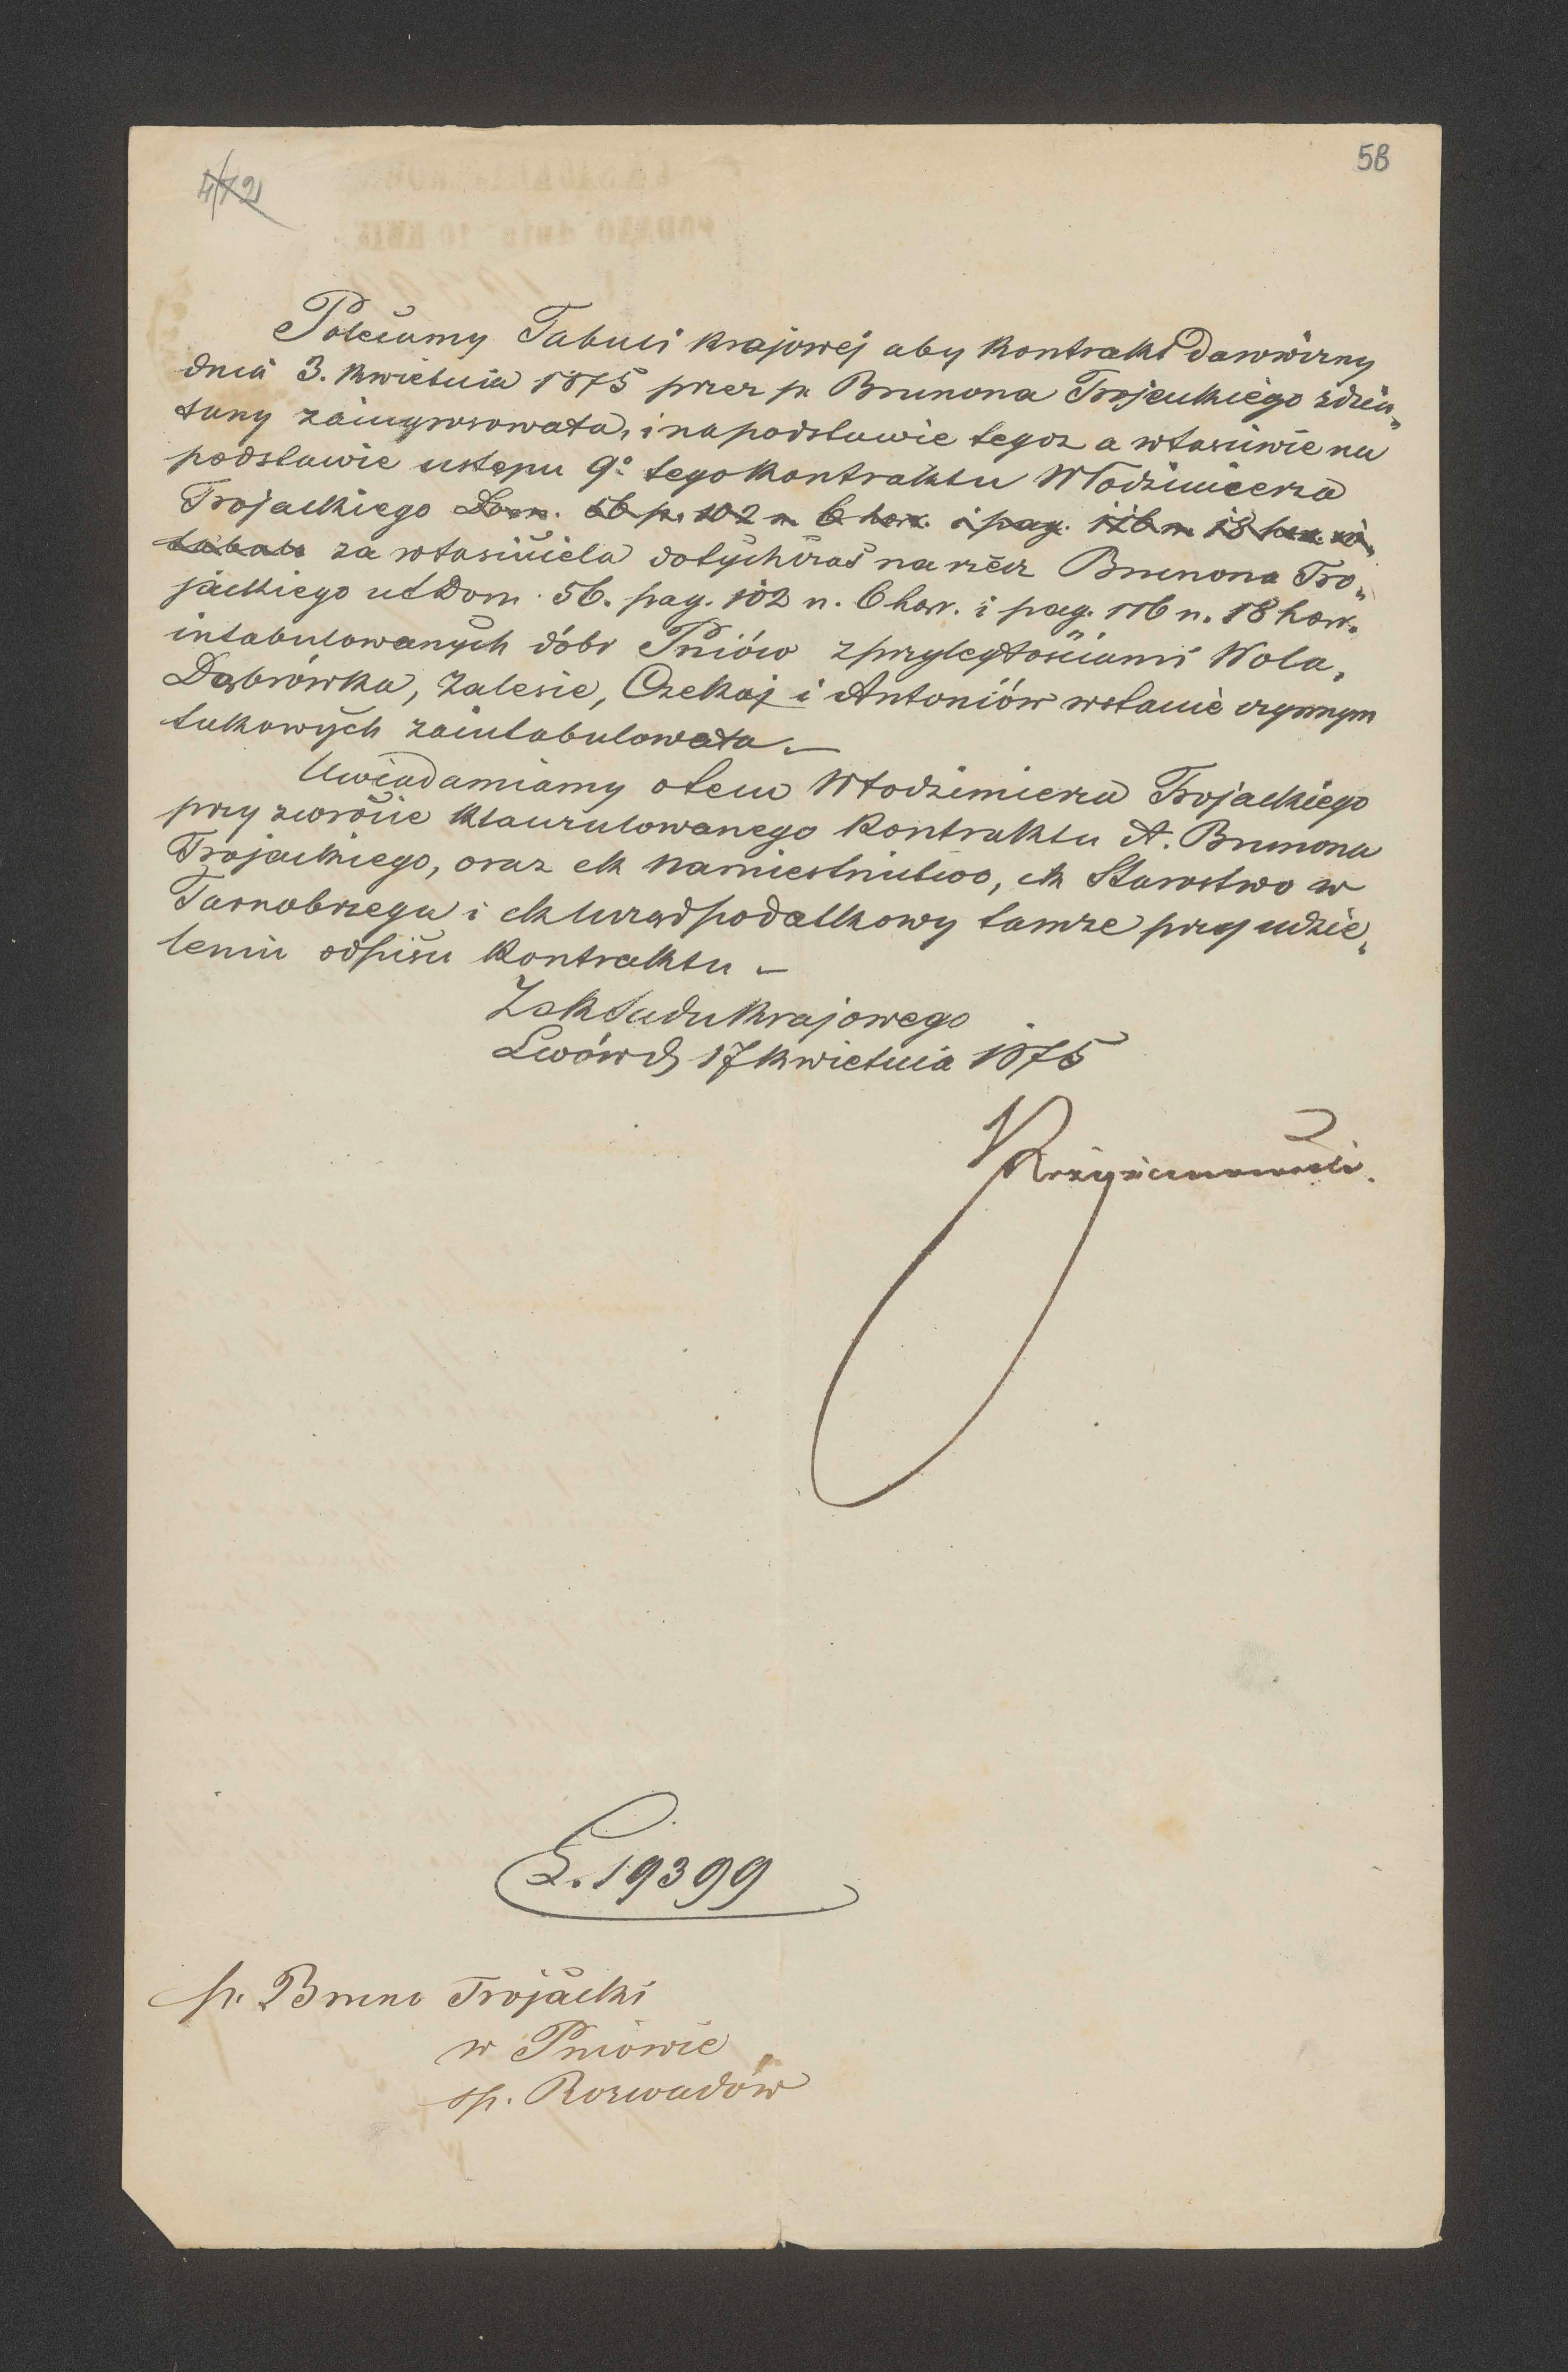 58
4/72
Polecamy Tabuli krajowej aby kontrakt darowizny
dnia 3. Kwietnia 1875 przez p. Brunona Trojackiego zdzia„
łany zaingrosowała, i na podstawie tegoż a właściwie na
podstawie ustępu 9º tego kontraktu Włodzimierza
Trojackiego Dom. 56 p. 102 n. 6 haer. i pag. 116 n. 18 haer.
za właściciela dotychczas na rzecz Brunona Tro„
jackiego ut Dom. 56. pag. 102 n. 6 haer. i pag. 116 n. 18 haer.
intabulowanych dóbr Pniów z przyległościami Wola,
Dąbrówka, Zalesie, Czekaj i Antoniów w stanie czynnym
takowych zaintabulowała. —
Uwiadamiamy o tem Włodzimierza Trojackiego
przy zwrócie klauzulowanego kontraktu A. Brunona
Trojackiego, oraz ck Namiestnictwo, ck Starostwo w
Tarnobrzegu i ck Urząd podatkowy tamże przy udzie„
leniu odpisu kontraktu —
Z ck Sądu krajowego
Lwów d. 17 Kwietnia 1875
L. 19399
p. Bruno Trojacki
w Pniowie
op. Rozwadów